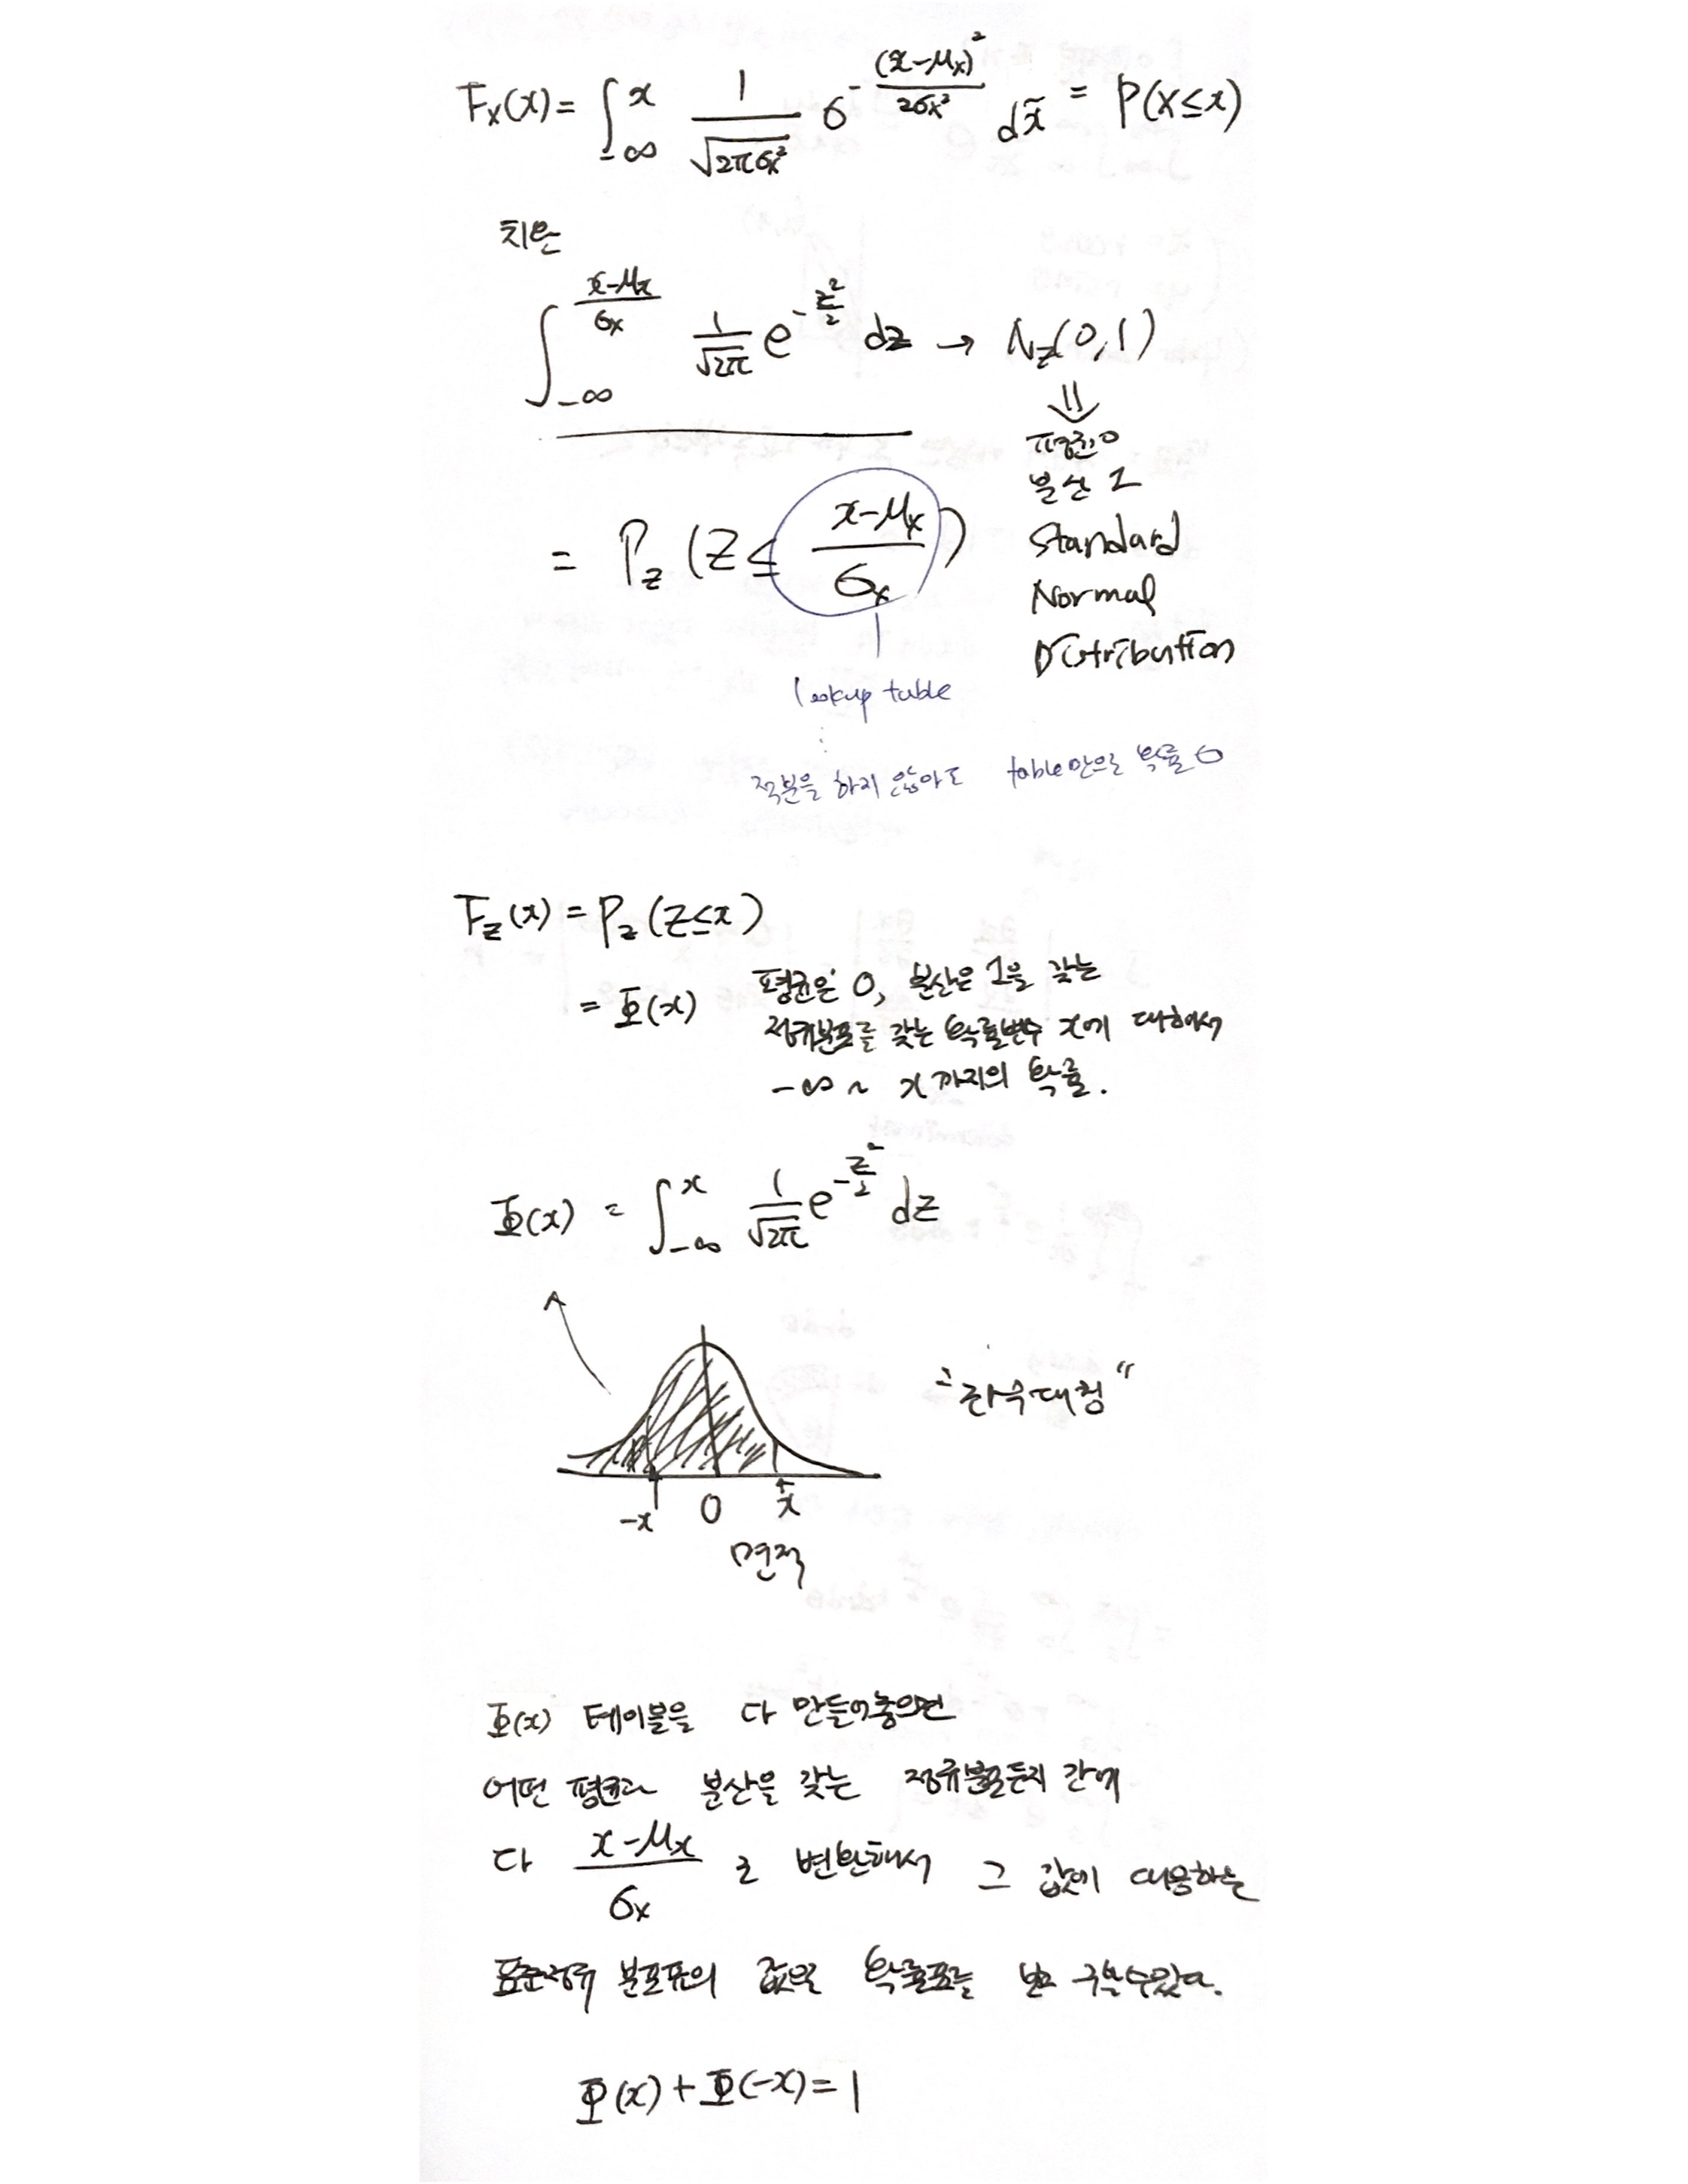 F_X(x) = ∫_{-∞}^{x} 1/√(2πσ_x²) 6^{-(x-μ_x)²/2σ_x²} dx̃ = P(X≤x)
치환
∫_{-∞}^{(x-μ_x)/σ_x} 1/√(2π) e^{-z²/2} dz → N_z(0,1)
⇓
평균0
분산 1
= P_z (Z ≤ (x-μ_x)/σ_x)
Standard
Normal
Distribution
lookup table
⋮
적분을 하지 않아도 table만으로 확률 0
F_z(x) = P_z(Z≤x)
= Φ(x)
평균은 0, 분산은 1을 갖는
정규분포를 갖는 확률변수 x에 대해서
-∞ ~ x 까지의 확률.
Φ(x) = ∫_{-∞}^{x} 1/√(2π) e^{-z²/2} dz
"좌우대칭"
-x 0 x
면적
Φ(x) 테이블을 다 만들어놓으면
어떤 평균과 분산을 갖는 정규분포든지 간에
다 (x-μ_x)/σ_x 로 변환해서 그 값에 대응하는
표준정규 분포표의 값을 확률표를 보고 구할수있다.
Φ(x) + Φ(-x) = 1